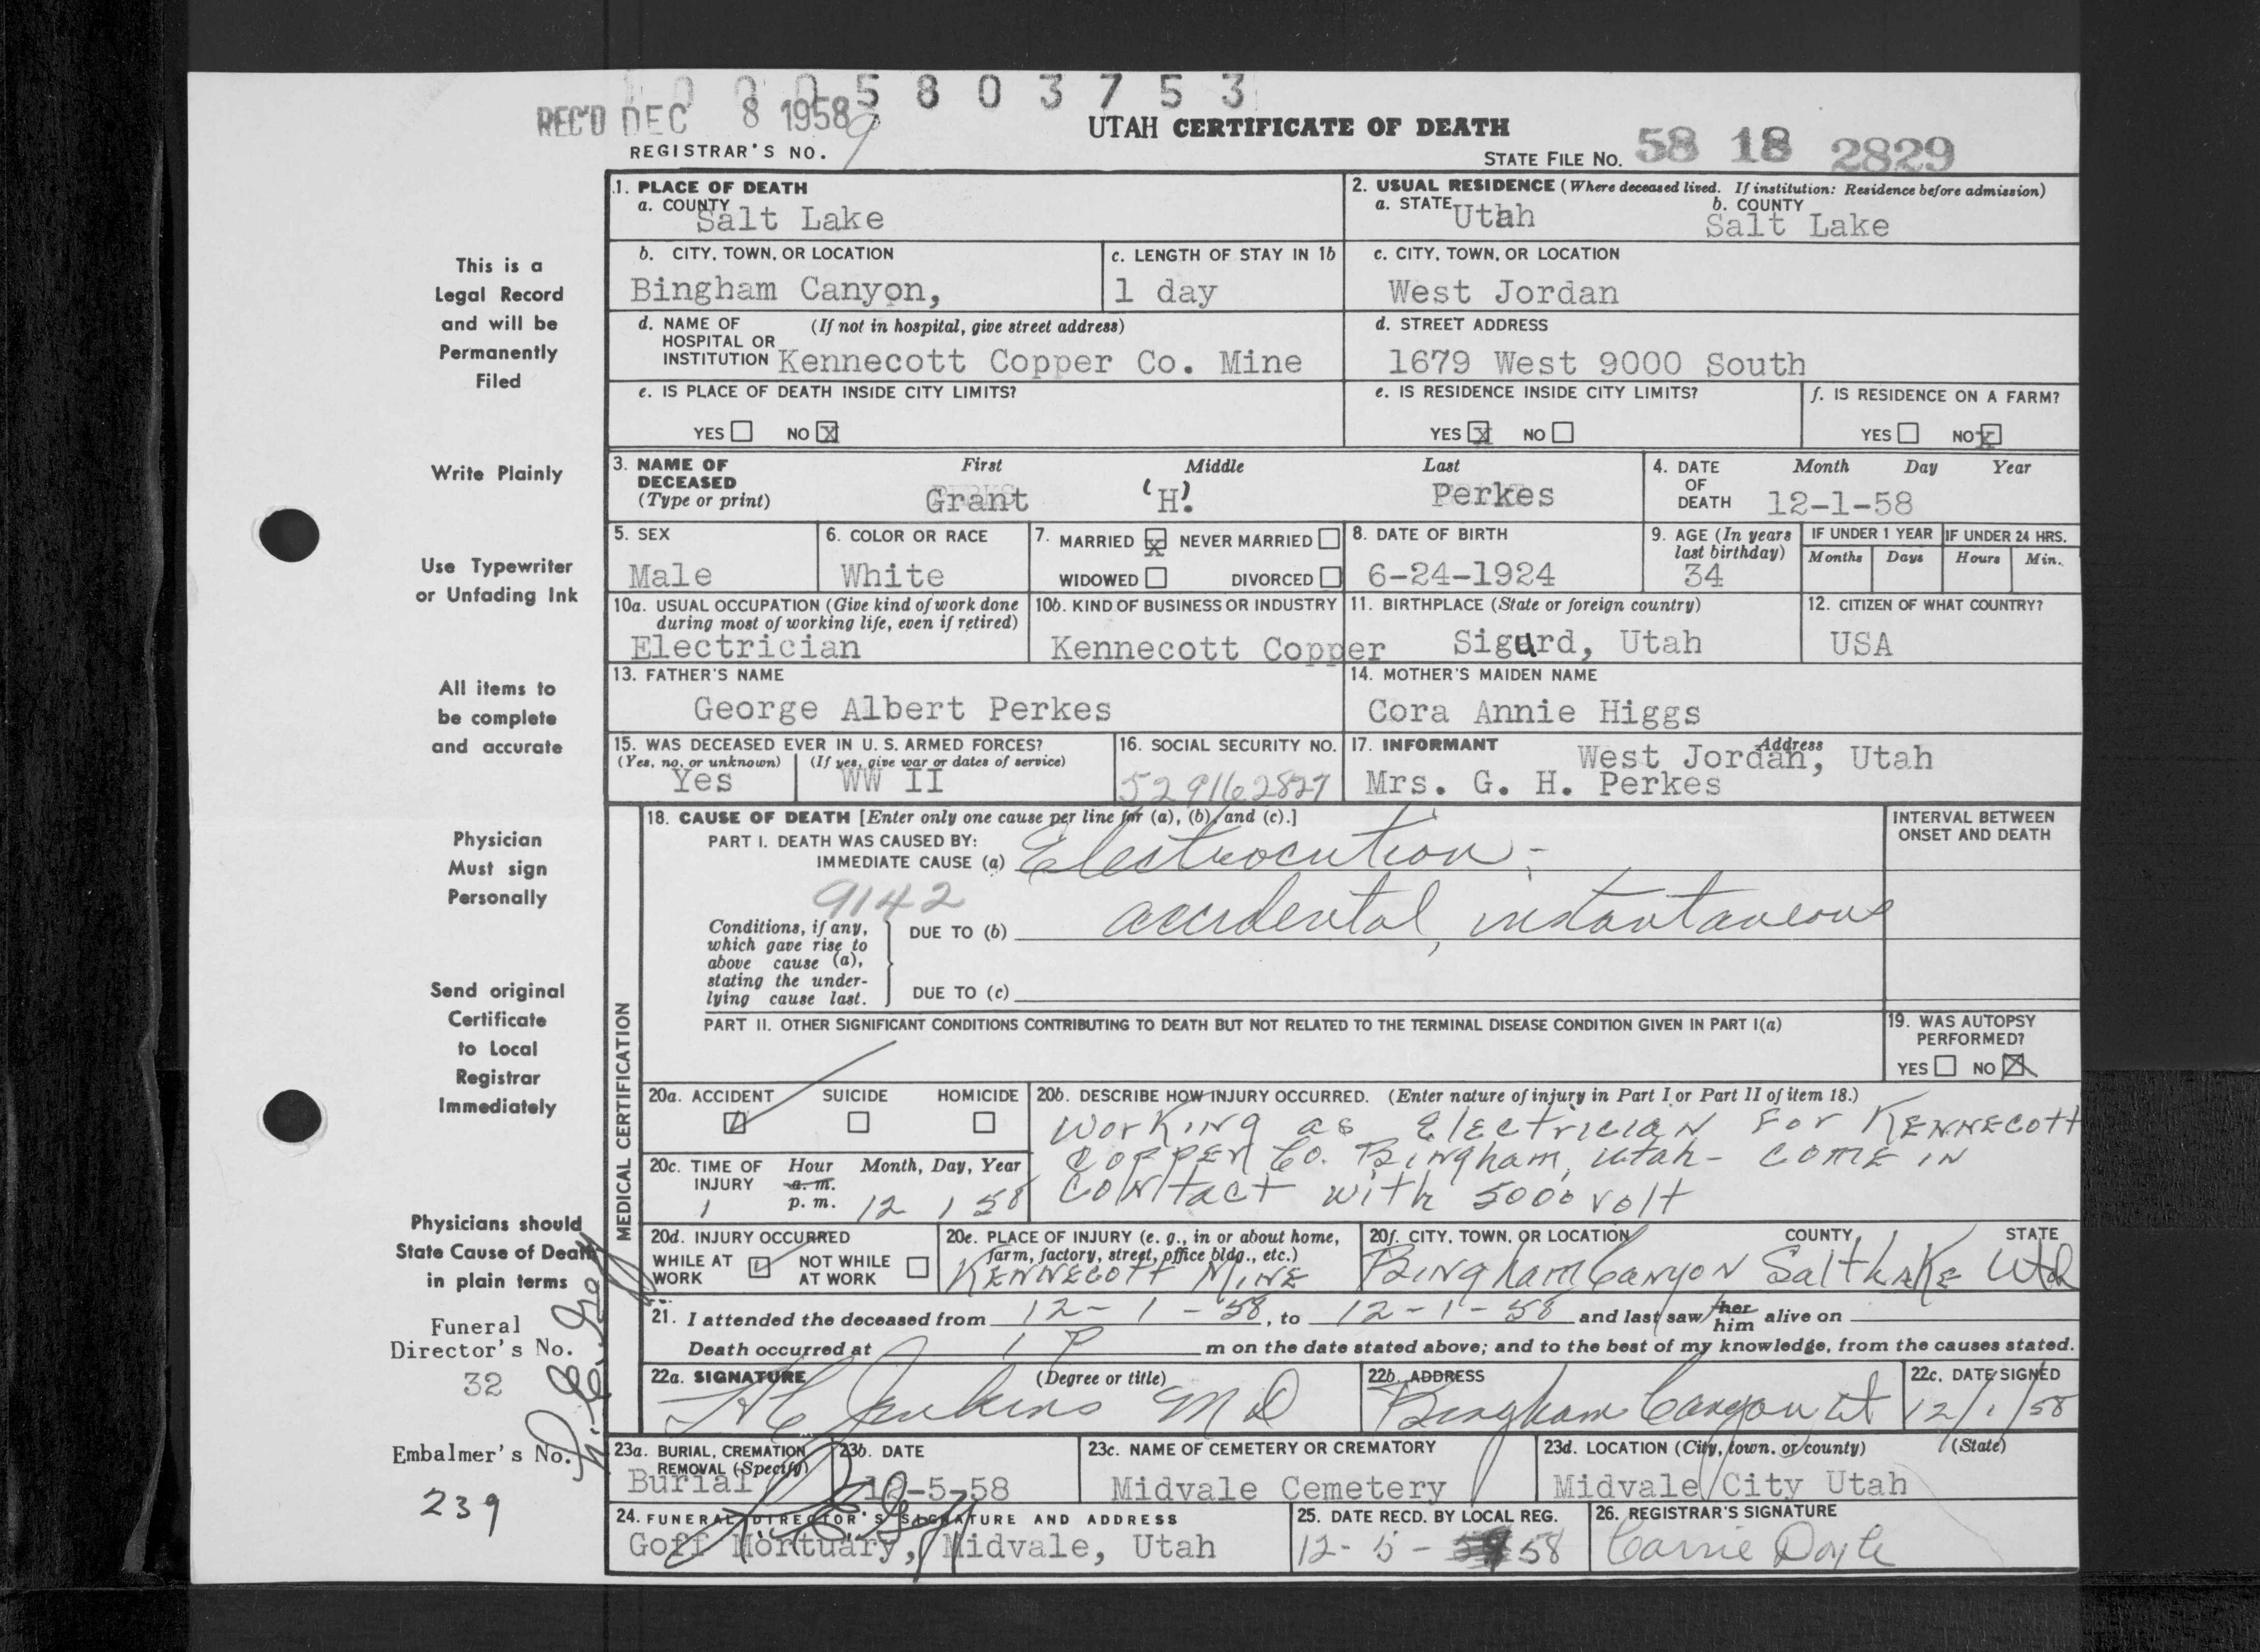 0 0 0 5 8 0 3 7 5 3
REC'D DEC 8 1958
UTAH CERTIFICATE OF DEATH
REGISTRAR'S NO. 9
STATE FILE NO. 58 18 2829
1. PLACE OF DEATH
a. COUNTY Salt Lake
2. USUAL RESIDENCE (Where deceased lived. If institution: Residence before admission)
a. STATE Utah b. COUNTY Salt Lake
b. CITY, TOWN, OR LOCATION Bingham Canyon,
c. LENGTH OF STAY IN 1b 1 day
c. CITY, TOWN, OR LOCATION West Jordan
d. NAME OF HOSPITAL OR INSTITUTION (If not in hospital, give street address) Kennecott Copper Co. Mine
d. STREET ADDRESS 1679 West 9000 South
e. IS PLACE OF DEATH INSIDE CITY LIMITS?
YES NO X
e. IS RESIDENCE INSIDE CITY LIMITS?
YES X NO
f. IS RESIDENCE ON A FARM?
YES NO X
3. NAME OF DECEASED (Type or print)
First Middle Last
Grant (H). Perkes
4. DATE OF DEATH Month Day Year
12-1-58
5. SEX Male
6. COLOR OR RACE White
7. MARRIED X NEVER MARRIED
WIDOWED DIVORCED
8. DATE OF BIRTH 6-24-1924
9. AGE (In years last birthday) 34
IF UNDER 1 YEAR Months Days
IF UNDER 24 HRS. Hours Min.
10a. USUAL OCCUPATION (Give kind of work done during most of working life, even if retired) Electrician
10b. KIND OF BUSINESS OR INDUSTRY Kennecott Copper
11. BIRTHPLACE (State or foreign country) Sigurd, Utah
12. CITIZEN OF WHAT COUNTRY? USA
13. FATHER'S NAME George Albert Perkes
14. MOTHER'S MAIDEN NAME Cora Annie Higgs
15. WAS DECEASED EVER IN U. S. ARMED FORCES?
(Yes, no, or unknown) Yes
(If yes, give war or dates of service) WW II
16. SOCIAL SECURITY NO. 529162827
17. INFORMANT Address West Jordan, Utah
Mrs. G. H. Perkes
MEDICAL CERTIFICATION
18. CAUSE OF DEATH [Enter only one cause per line for (a), (b), and (c).]
PART I. DEATH WAS CAUSED BY:
IMMEDIATE CAUSE (a) Electrocution -
9142
Conditions, if any, which gave rise to above cause (a), stating the underlying cause last.
DUE TO (b) accidental, instantaneous
DUE TO (c)
INTERVAL BETWEEN ONSET AND DEATH
PART II. OTHER SIGNIFICANT CONDITIONS CONTRIBUTING TO DEATH BUT NOT RELATED TO THE TERMINAL DISEASE CONDITION GIVEN IN PART I(a)
19. WAS AUTOPSY PERFORMED?
YES NO X
20a. ACCIDENT SUICIDE HOMICIDE
20b. DESCRIBE HOW INJURY OCCURRED. (Enter nature of injury in Part I or Part II of item 18.)
Working as Electrician For KENNECOTT
COPPER Co. Bingham, Utah - COME IN
CONtact with 5000 volt
20c. TIME OF INJURY Hour Month, Day, Year
a. m.
1 p. m. 12 1 58
20d. INJURY OCCURRED
WHILE AT WORK NOT WHILE AT WORK
20e. PLACE OF INJURY (e. g., in or about home, farm, factory, street, office bldg., etc.)
KENNECOTT MINE
20f. CITY, TOWN, OR LOCATION COUNTY STATE
Bingham Canyon Salt Lake Utah
21. I attended the deceased from 12-1-58, to 12-1-58 and last saw her him alive on
Death occurred at 1 P m on the date stated above; and to the best of my knowledge, from the causes stated.
22a. SIGNATURE (Degree or title) Jenkins MD
22b. ADDRESS Bingham Canyon Ut
22c. DATE SIGNED 12/1/58
23a. BURIAL, CREMATION, REMOVAL (Specify) Burial
23b. DATE 12-5-58
23c. NAME OF CEMETERY OR CREMATORY Midvale Cemetery
23d. LOCATION (City, town, or county) (State) Midvale City Utah
24. FUNERAL DIRECTOR'S SIGNATURE AND ADDRESS
Goff Mortuary, Midvale, Utah
25. DATE RECD. BY LOCAL REG. 12-5-58
26. REGISTRAR'S SIGNATURE Carrie Doyle
This is a
Legal Record
and will be
Permanently
Filed
Write Plainly
Use Typewriter
or Unfading Ink
All items to
be complete
and accurate
Physician
Must sign
Personally
Send original
Certificate
to Local
Registrar
Immediately
Physicians should
State Cause of Death
in plain terms
Funeral
Director's No.
32
Embalmer's No.
239